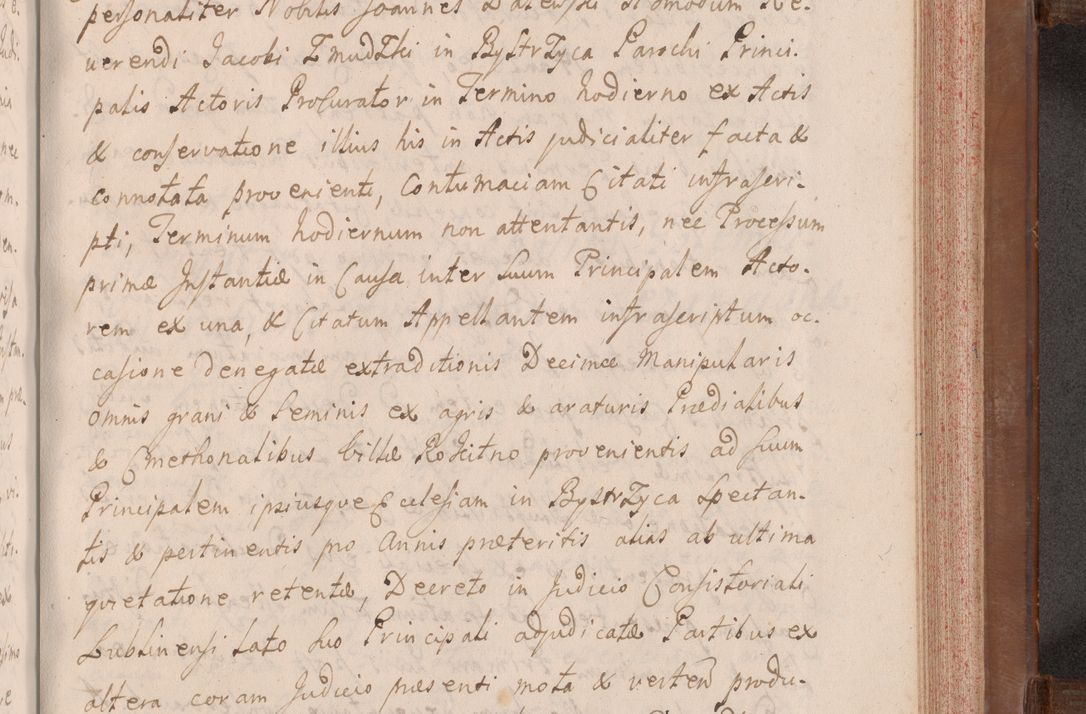 personaliter Nobilis Joannes Zalewski Admodum Re-
verendi Jacobi ZmudZki in BystrZyca Parochi Princi-
palis Actoris Procurator in Termino hodierno ex Actis
& conservatione illius his in Actis judicialiter facta &
connotata provenienti, Contumaciam Citati infrascri-
pti, Terminum hodiernum non attentantis, nec Processum
primæ Instantiæ in Causa inter suum Principalem Acto-
rem ex una, & Citatum Appellantem infrascriptum oc-
casione denegatæ extraditionis Decimæ Manipularis
omnis grani & seminis ex agris & araturis Prædialibus
& Cmethonalibus Villæ RoKitno provenientis ad suum
Principalem ipsiusque Ecclesiam in BystrZyca spectan-
tis & pertinentis pro Annis præteritis alias ab ultima
quietatione retentæ, Decreto in Judicio Consistoriali
Lublinensi lato suo Principali adjudicatæ Partibus ex
altera coram Judicio præsenti mota & verten̄ produ-